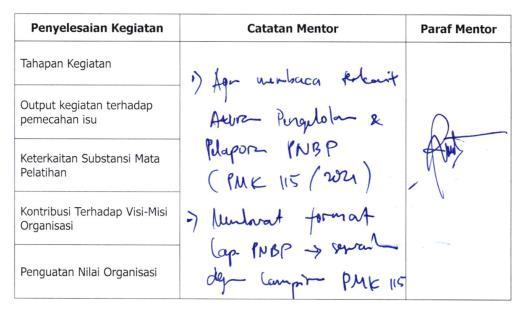 Penyelesaian Kegiatan
Catatan Mentor
Paraf Mentor
Tahapan Kegiatan
Output kegiatan terhadap
pemecahan isu
Keterkaitan Substansi Mata
Pelatihan
Kontribusi Terhadap Visi-Misi
Organisasi
Penguatan Nilai Organisasi
1) Agar membaca terkait
Aturan Pengelolaan &
Pelaporan PNBP
(PMK 115/2021)
-) Membuat format
Lap PNBP → sesuai
dgn Lampiran PMK 115